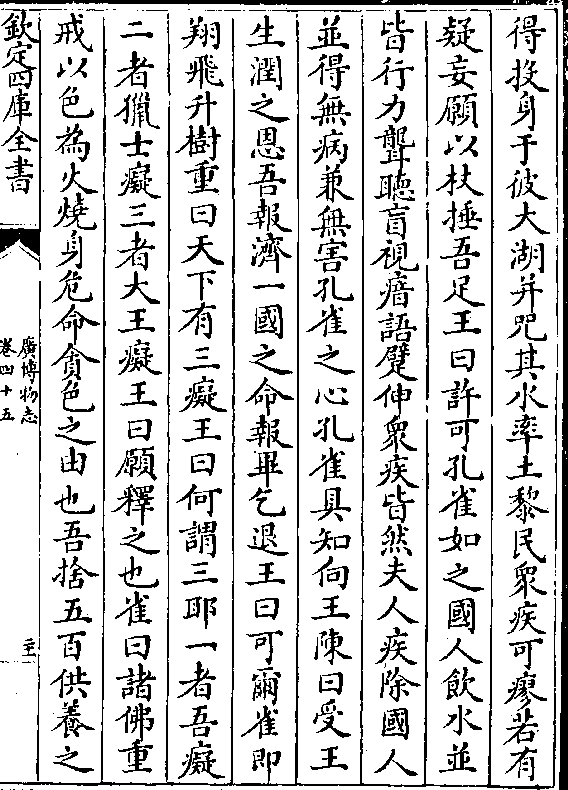 得投身于彼大湖并咒其水率土黎民衆疾可瘳若有
疑妄願以杖捶吾足王曰許可孔雀如之國人飲水並
皆行力聾聽盲視瘖語躄伸衆疾皆然夫人疾除國人
並得無病兼無害孔雀之心孔雀具知向王陳曰受王
生潤之恩吾報濟一國之命報畢乞退王曰可爾雀即
翔飛升樹重曰天下有三癡王曰何謂三耶一者吾癡
二者獵士癡三者大王癡王曰願釋之也雀曰諸佛重
戒以色為火燒身危命貪色之由也吾捨五百供養之
欽定四庫全書
廣博物志
卷四十五